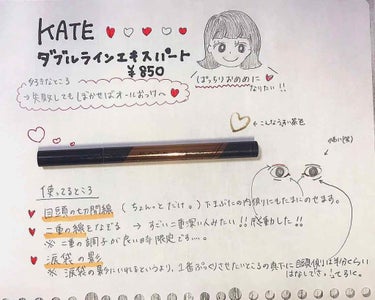 KATE
ダブルラインエキスパート
¥850
好きなところ
→ 失敗してもぼかせばオールおっけー
ぱっちりおめめに
なりたい!!
←こんなうすい茶色
使ってるところ
目頭の切開線 (ちょんっとだけ。) 下まぶたの内側りにもたまにのせます。
二重の線をなぞる → すごい二重深い人みたい!! 感動した!!
※ 二重の調子が良い時限定です....。
涙袋の影
※ 涙袋の影にいれるというより、1番ぷっくりさせたいところの真下に